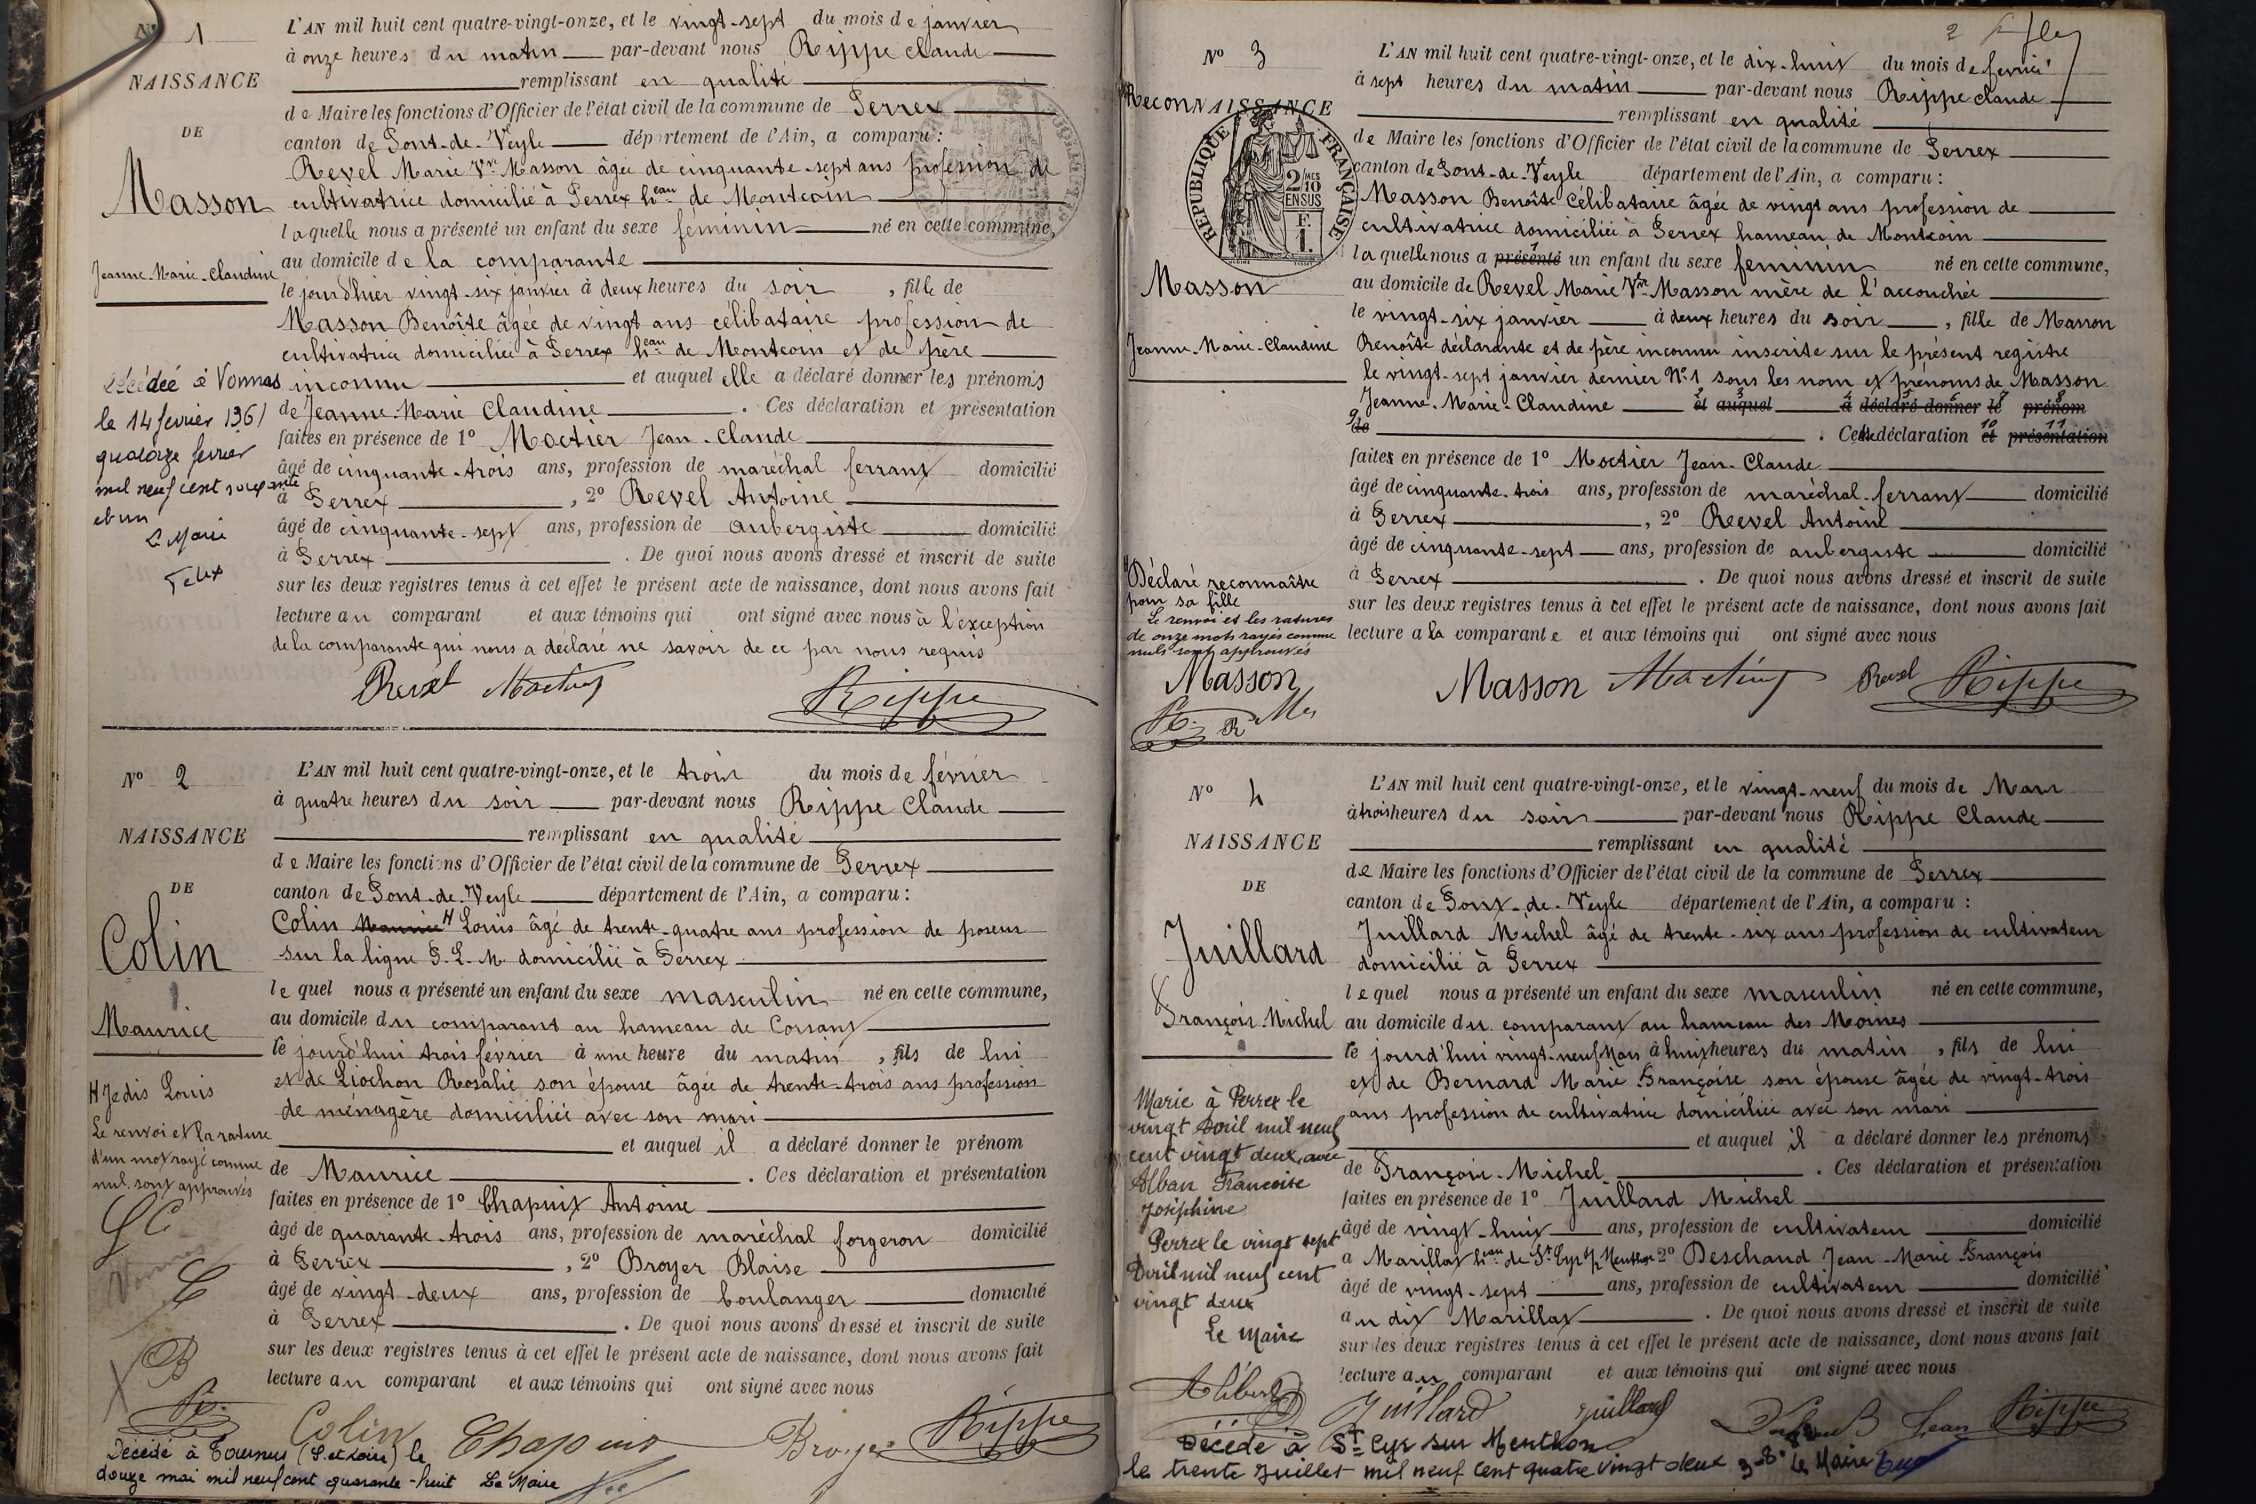 N° 1
NAISSANCE
DE
Masson
Jeanne-Marie-Claudine
Décédée à Vonnas
le 14 fevrier 1961
quatorze fevrier
mil neuf cent soixante
et un
Le Maire
L'AN mil huit cent quatre-vingt-onze, et le vingt-sept du mois de janvier
à onze heures du matin par-devant nous Rippe Claude
remplissant en qualité
de Maire les fonctions d'Officier de l'état civil de la commune de Perrex
canton de Pont-de-Veyle département de l'Ain, a comparu :
Revel Marie Vve Masson âgée de cinquante-sept ans profession de
cultivatrice domicilié à Perrex heau de Montcoin
laquelle nous a présenté un enfant du sexe féminin né en cette commune,
au domicile de la comparante
le jourd'hier vingt-six janvier à deux heures du soir, fille de
Masson Benoîte âgée de vingt ans célibataire profession de
cultivatrice domiciliée à Perrex heau de Montcoin et de père
inconnu et auquel elle a déclaré donner les prénoms
de Jeanne-Marie Claudine. Ces déclaration et présentation
faites en présence de 1° Moctier Jean-Claude
âgé de cinquante-trois ans, profession de maréchal ferrant domicilié
à Perrex, 2° Revel Antoine
âgé de cinquante-sept ans, profession de aubergiste domicilié
à Perrex. De quoi nous avons dressé et inscrit de suite
sur les deux registres tenus à cet effet le présent acte de naissance, dont nous avons fait
lecture au comparant et aux témoins qui ont signé avec nous à l'exception
de la comparante qui nous a déclaré ne savoir de ce par nous requis
Revel Moctier Rippe
N° 2
NAISSANCE
DE
Colin
Maurice
H Je dis Louis
Le renvoi et la rature
d'un mot rayé comme
nul sont approuvés
L C
Vonnas
C
B
R.
L'AN mil huit cent quatre-vingt-onze, et le trois du mois de février
à quatre heures du soir par-devant nous Rippe Claude
remplissant en qualité
de Maire les fonctions d'Officier de l'état civil de la commune de Perrex
canton de Pont-de-Veyle département de l'Ain, a comparu :
Colin Maurice H Louis âgé de trente-quatre ans profession de poseur
sur la ligne P.L.M. domicilié à Perrex
lequel nous a présenté un enfant du sexe masculin né en cette commune,
au domicile du comparant au hameau de Corsant
le jourd'hui trois février à une heure du matin, fils de lui
et de Liochon Rosalie son épouse âgée de trente-trois ans profession
de ménagère domiciliée avec son mari
et auquel il a déclaré donner le prénom
de Maurice. Ces déclaration et présentation
faites en présence de 1° Chapuix Antoine
âgé de quarante-trois ans, profession de maréchal forgeron domicilié
à Perrex, 2° Broyer Blaise
âgé de vingt-deux ans, profession de boulanger domicilié
à Perrex. De quoi nous avons dressé et inscrit de suite
sur les deux registres tenus à cet effet le présent acte de naissance, dont nous avons fait
lecture au comparant et aux témoins qui ont signé avec nous
Colin Chapuis Broyer Rippe
Décédé à Tournus (S. et Loire) le
douze mai mil neuf cent quarante-huit Le Maire
2
N° 3
ReconNAISSANCE
REPUBLIQUE FRANÇAISE
2/10 MES
EN SUS
F.
1.
Masson
Jeanne-Marie-Claudine
H Déclaré reconnaître
pour sa fille
Le renvoi et les ratures
de onze mots rayés comme
nuls sont approuvés
Masson
R. R Mer
L'AN mil huit cent quatre-vingt-onze, et le dix-huit du mois de fevrier
à sept heures du matin par-devant nous Rippe Claude
remplissant en qualité
de Maire les fonctions d'Officier de l'état civil de la commune de Perrex
canton de Pont-de-Veyle département de l'Ain, a comparu :
Masson Benoîte Célibataire âgée de vingt ans profession de
cultivatrice domiciliée à Perrex hameau de Montcoin
laquelle nous a présenté 1 un enfant du sexe feminin né en cette commune,
au domicile de Revel Marie Vve Masson mère de l'accouchée
le vingt-six janvier à deux heures du soir, fille de Masson
Benoîte déclarante et de père inconnu inscrite sur le présent registre
le vingt-sept janvier dernier N° 1 sous les nom et prénoms de Masson
Jeanne-Marie-Claudine 2 et 3 auquel 4 a 5 déclaré 6 donner 7 le 8 prénom
9 de. Cette déclaration 10 et 11 présentation
faites en présence de 1° Moctier Jean-Claude
âgé de cinquante-trois ans, profession de maréchal-ferrant domicilié
à Perrex, 2° Revel Antoine
âgé de cinquante-sept ans, profession de aubergiste domicilié
à Perrex. De quoi nous avons dressé et inscrit de suite
sur les deux registres tenus à cet effet le présent acte de naissance, dont nous avons fait
lecture à la comparante et aux témoins qui ont signé avec nous
Masson Moctier Revel Rippe
N° 4
NAISSANCE
DE
Juillard
François-Michel
Marié à Perrex le
vingt Avril mil neuf
cent vingt deux, avec
Alban Francoise
Joséphine
Perrex le vingt sept
Avril mil neuf cent
vingt deux
Le Maire
L'AN mil huit cent quatre-vingt-onze, et le vingt-neuf du mois de Mars
à trois heures du soir par-devant nous Rippe Claude
remplissant en qualité
de Maire les fonctions d'Officier de l'état civil de la commune de Perrex
canton de Pont-de-Veyle département de l'Ain, a comparu :
Juillard Michel âgé de trente-six ans profession de cultivateur
domicilié à Perrex
lequel nous a présenté un enfant du sexe masculin né en cette commune,
au domicile du comparant au hameau des Moines
le jourd'hui vingt-neuf Mars à huit heures du matin, fils de lui
et de Bernard Marie Françoise son épouse âgée de vingt-trois
ans profession de cultivatrice domiciliée avec son mari
et auquel il a déclaré donner les prénoms
de François-Michel. Ces déclaration et présentation
faites en présence de 1° Juillard Michel
âgé de vingt-huit ans, profession de cultivateur domicilié
à Marillat heau de St Cyr s/ Menthon 2° Deschaud Jean-Marie-François
âgé de vingt-sept ans, profession de cultivateur domicilié
au dit Marillat. De quoi nous avons dressé et inscrit de suite
sur les deux registres tenus à cet effet le présent acte de naissance, dont nous avons fait
lecture au comparant et aux témoins qui ont signé avec nous
Juillard Juillard Jean Rippe
Décédé à St Cyr sur Menthon
le trente Juillet mil neuf cent quatre vingt deux Le Maire